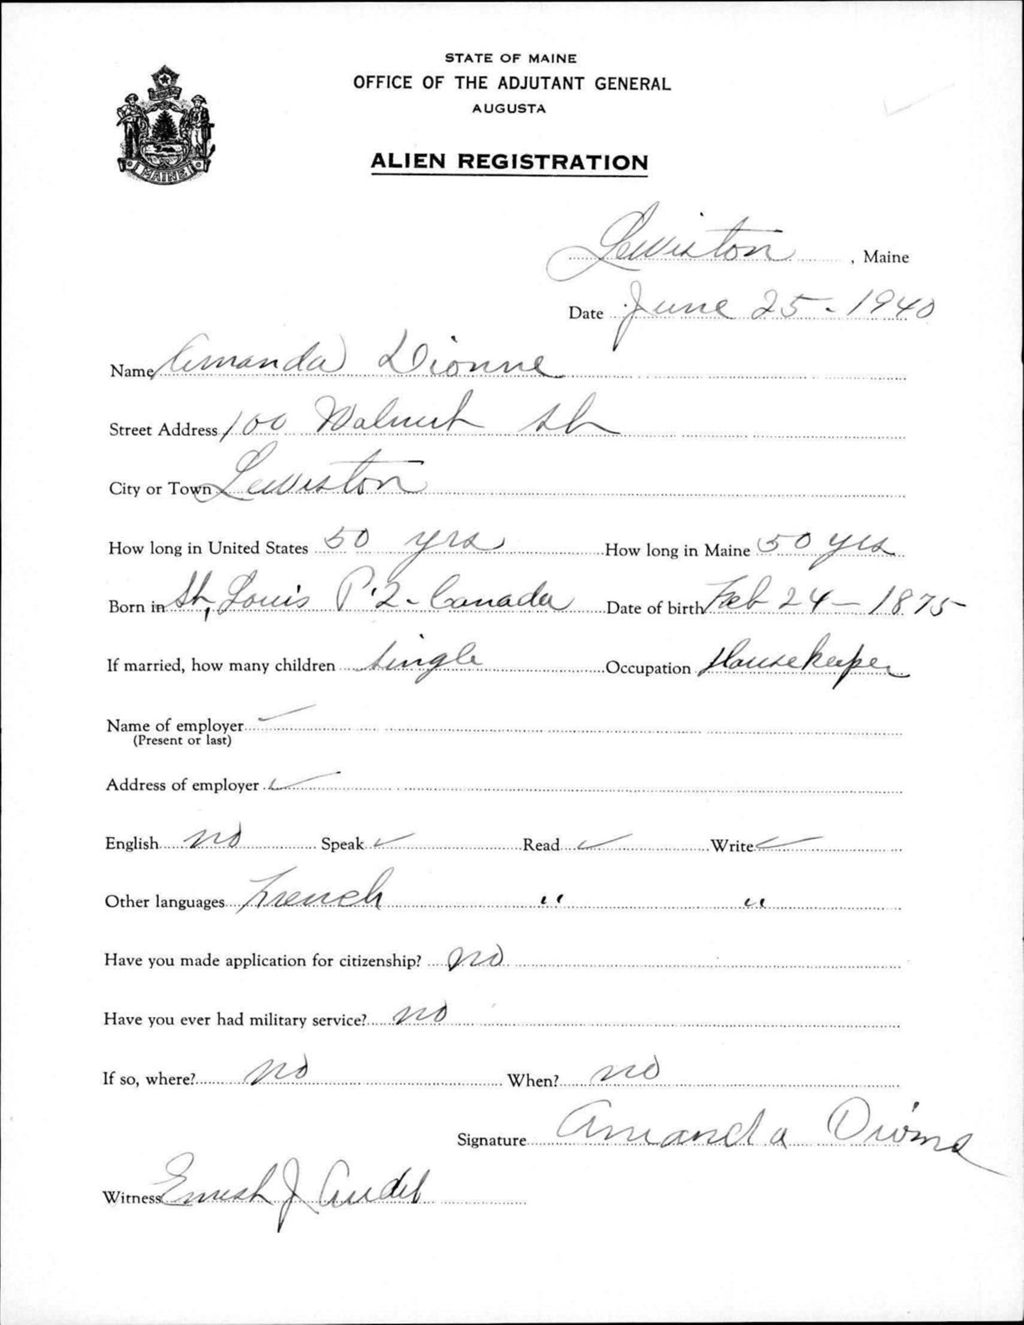 STATE OF MAINE
OFFICE OF THE ADJUTANT GENERAL
AUGUSTA
MAINE
ALIEN REGISTRATION
Lewiston, Maine
Date June 25 - 1940
Name Amanda Dionne
Street Address 100 Walnut St
City or Town Lewiston
How long in United States 50 yrs How long in Maine 50 yrs
Born in St, Louis P.Q - Canada Date of birth Feb 24 - 1875
If married, how many children single Occupation Housekeeper
Name of employer
(Present or last)
Address of employer
English no Speak Read Write
Other languages French " "
Have you made application for citizenship? no
Have you ever had military service? no
If so, where? no When? no
Signature Amanda Dionne
Witness Ernest J